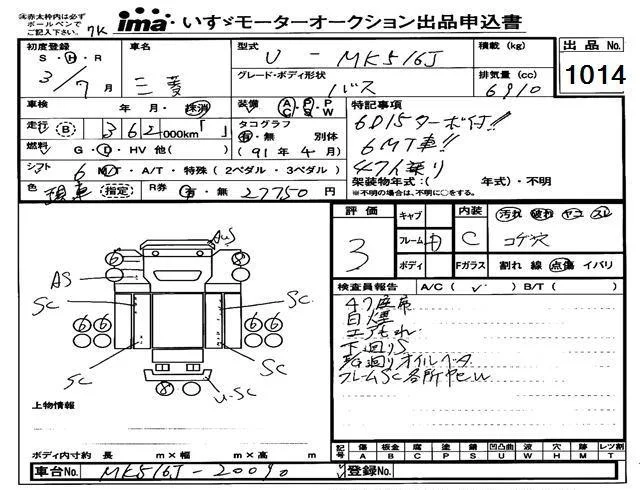 ㊟赤太枠内は必ず
ボールペンで
ご記入下さい。
7K
ima いすゞモーターオークション出品申込書
初度登録 S・H・R 3/7月
車名 三菱
型式 U-MK516J
積載 (kg)
出品No. 1014
グレード・ボディ形状 バス
排気量 (cc) 6910
車検 年 月・抹消
装備 A C・P S・P W
特記事項
6D15ターボ付!!
6MT車!!
47人乗り
走行 (B) 362,000km「 」
タコグラフ 有・無 別体 (91年4月)
燃料 G・D・HV 他( )
シフト 6 MT・A/T・特殊(2ペダル・3ペダル)
架装物年式:( 年式)・不明
※不明の場合は、不明に○をする。
色 (指定) R券 有・無 27750円
評価 3
キャブ
フレーム
ボディ
内装 C 汚れ 破れ ヤコ スレ
コゲ穴
Fガラス 割れ 線 点傷 イバリ
検査員報告 A/C( ✓ ) B/T( )
47座席
白煙
エアもれ
下廻りS
オイルベタ
フレームSC各所
AWS
6 8
AS
SC SC
6 6 6 6
SC SC
8 U-SC
上物情報
ボディ内寸約 長 m×幅 m×高 m
記号 傷 板金 腐 塗 錆 凹凸曲 波 穴 跡 レツ割
A B C P S U W H M T
車台No. MK516J-20090
登録No.